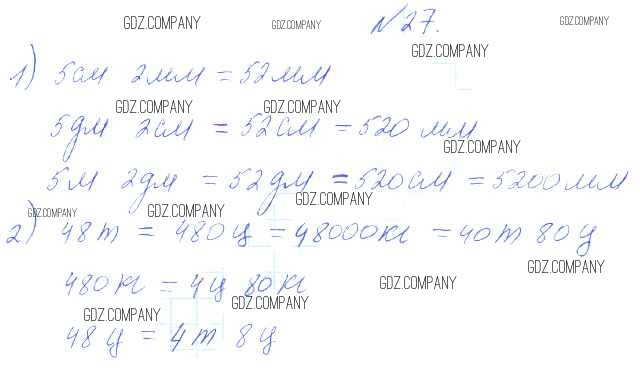 GDZ.COMPANY GDZ.COMPANY №27. GDZ.COMPANY
GDZ.COMPANY
1) 5см 2мм = 52мм
GDZ.COMPANY GDZ.COMPANY
5дм 2см = 52см = 520 мм
GDZ.COMPANY
5м 2дм = 52дм = 520см = 5200мм
GDZ.COMPANY
GDZ.COMPANY GDZ.COMPANY
2) 48т = 480ц = 48000кг = 40т 80ц
GDZ.COMPANY
480кг = 4ц 80кг
GDZ.COMPANY
GDZ.COMPANY GDZ.COMPANY
48ц = 4т 8ц